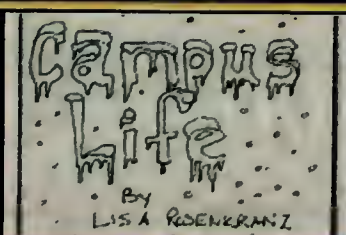 Campus
Life
By
LISA ROSENKRANZ